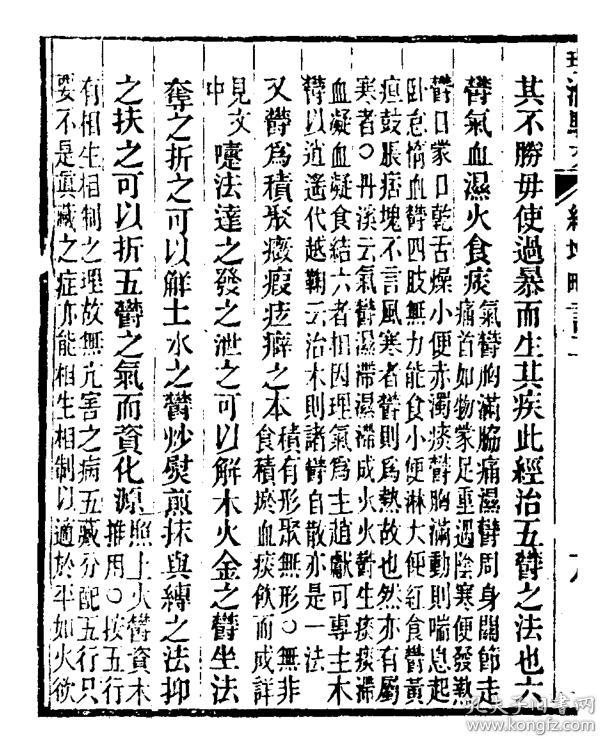 其不勝毋使過暴而生其疾此經治五鬱之法也六
鬱氣血濕火食痰
氣鬱胸滿脇痛濕鬱周身關節走
痛首如物蒙足重遇陰寒便發熱
鬱目蒙口乾舌燥小便赤濁痰鬱胸滿動則喘息起
臥怠惰血鬱四肢無力能食小便淋大便紅食鬱黃
疸鼓脹痞塊不言風寒者鬱則爲熱故也然亦有屬
寒者○丹溪云氣鬱濕滯濕滯成火火鬱生痰痰滯
血凝血凝食結六者相因理氣爲主趙獻可專主木
鬱以逍遙代越鞠云治木則諸鬱自散亦是一法
又鬱爲積聚癥瘕痃癖之本
積有形聚無形○無非
食積瘀血痰飲而成詳
見文
中
嚏法達之發之泄之可以解木火金之鬱坐法
奪之折之可以解土水之鬱炒熨煎抹與縛之法抑
之扶之可以折五鬱之氣而資化源
照上火鬱資木
推用○按五行
有相生相制之理故無亢害之病五藏分配五行只
要不是眞藏之症亦能相生相制以適於平如火欲